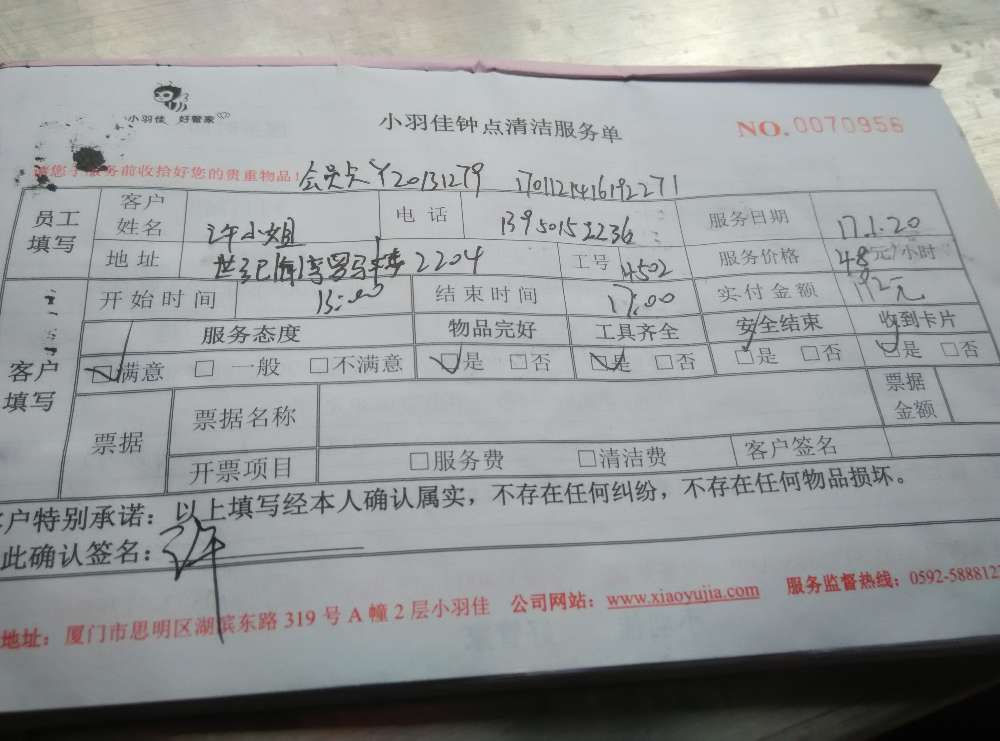 小羽佳 好管家
小羽佳钟点清洁服务单
NO.0070956
请您于服务前收拾好您的贵重物品!
会员卡Y20131279 1701121416192271
员工填写 客户姓名 许小姐 电话 13950152236 服务日期 17.1.20
地址 2204 工号 4502 服务价格 48元/小时
客户填写 开始时间 13:00 结束时间 17:00 实付金额 192元
服务态度 物品完好 工具齐全 安全结束 收到卡片
☑满意 □一般 □不满意 ☑是 □否 ☑是 □否 ☑是 □否 ☑是 □否
票据 票据名称 票据金额
开票项目 □服务费 □清洁费 客户签名
客户特别承诺：以上填写经本人确认属实，不存在任何纠纷，不存在任何物品损坏。
此确认签名：许
地址：厦门市思明区湖滨东路 319 号 A 幢 2 层小羽佳 公司网站：www.xiaoyujia.com 服务监督热线：0592-588812